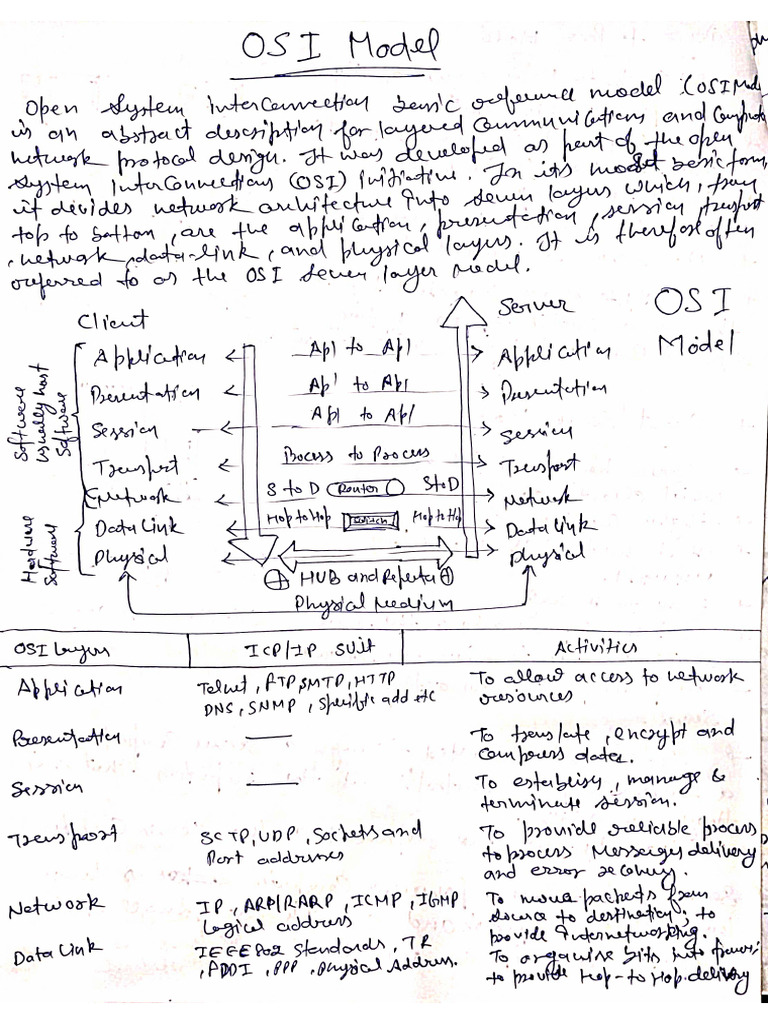 OSI Model
Open System interConnection basic reference model (OSI Mod
is an abstract description for layered Communications and Comput
network protocal design. It was developed as part of the open
System InterConnections (OSI) initiative. In its most basic form,
it divides network architecture into seven layers which, from
top to bottom, are the application, presentation, session, transport
, network, data-link, and physical layers. It is therefor often
referred to as the OSI seven layer model.
Client
Server
OSI
Model
Software
Usually host
Software
Hardware
Software
Application
Apl to Apl
Application
Presentation
Apl to Apl
Presentation
Session
Apl to Apl
Session
Transport
Process to Process
Transport
Network
S to D
Router
S to D
Network
Data Link
Hop to Hop
Switch
Hop to Ho
Data Link
Physical
Physical
HUB and Repeter
Physical Medium
OSI layers
TCP/IP Suit
Activities
Application
Telnet, FTP, SMTP, HTTP
DNS, SNMP, Specific add etc
To allow access to network
resources
Presentation
To translate, encrypt and
compress data.
Session
To establish, manage &
terminate session.
Transport
SCTP, UDP, Sockets and
Port addresses
To provide reliable process
to process Messages delivery
and error recovery.
Network
IP, ARP/RARP, ICMP, IGMP
Logical address
To move packets from
source to destination, to
provide internetworking.
Data Link
IEEE 802 Standards, TR
, FDDI, PPP, Physical Address.
To organise bits into
to provide Hop-to Hop delivery